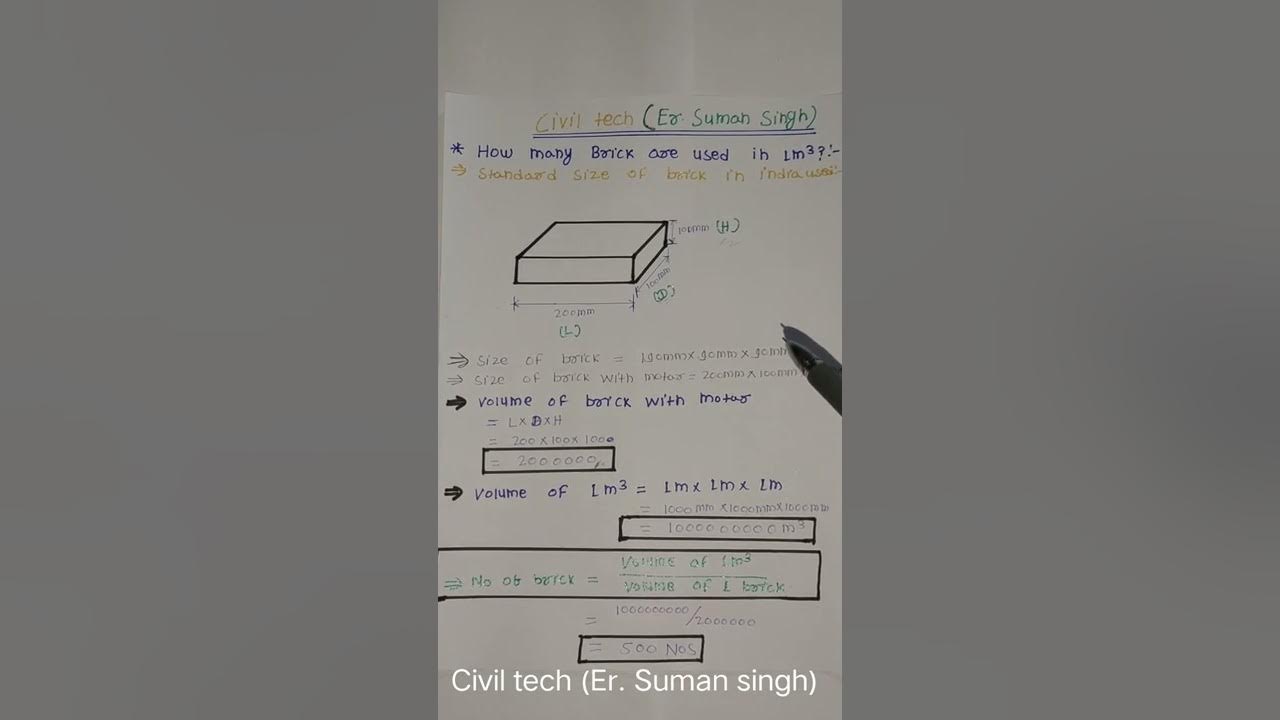 Civil tech (Er. Suman Singh)
* How many Brick are used in 1m³?:-
⇒ Standard size of brick in india use:-
100mm (H)
100mm
(D)
200mm
(L)
⇒ Size of brick = 190mm x 90mm x 90mm
⇒ Size of brick with motar = 200mm x 100mm
➡ Volume of brick with motar
= L x D x H
= 200 x 100 x 100
= 2000000
⇒ Volume of 1m³ = 1m x 1m x 1m
= 1000mm x 1000mm x 1000mm
= 1000000000 m³
⇒ No of brick = Volume of 1m³
Volume of 1 brick
= 1000000000/2000000
= 500 Nos
Civil tech (Er. Suman singh)